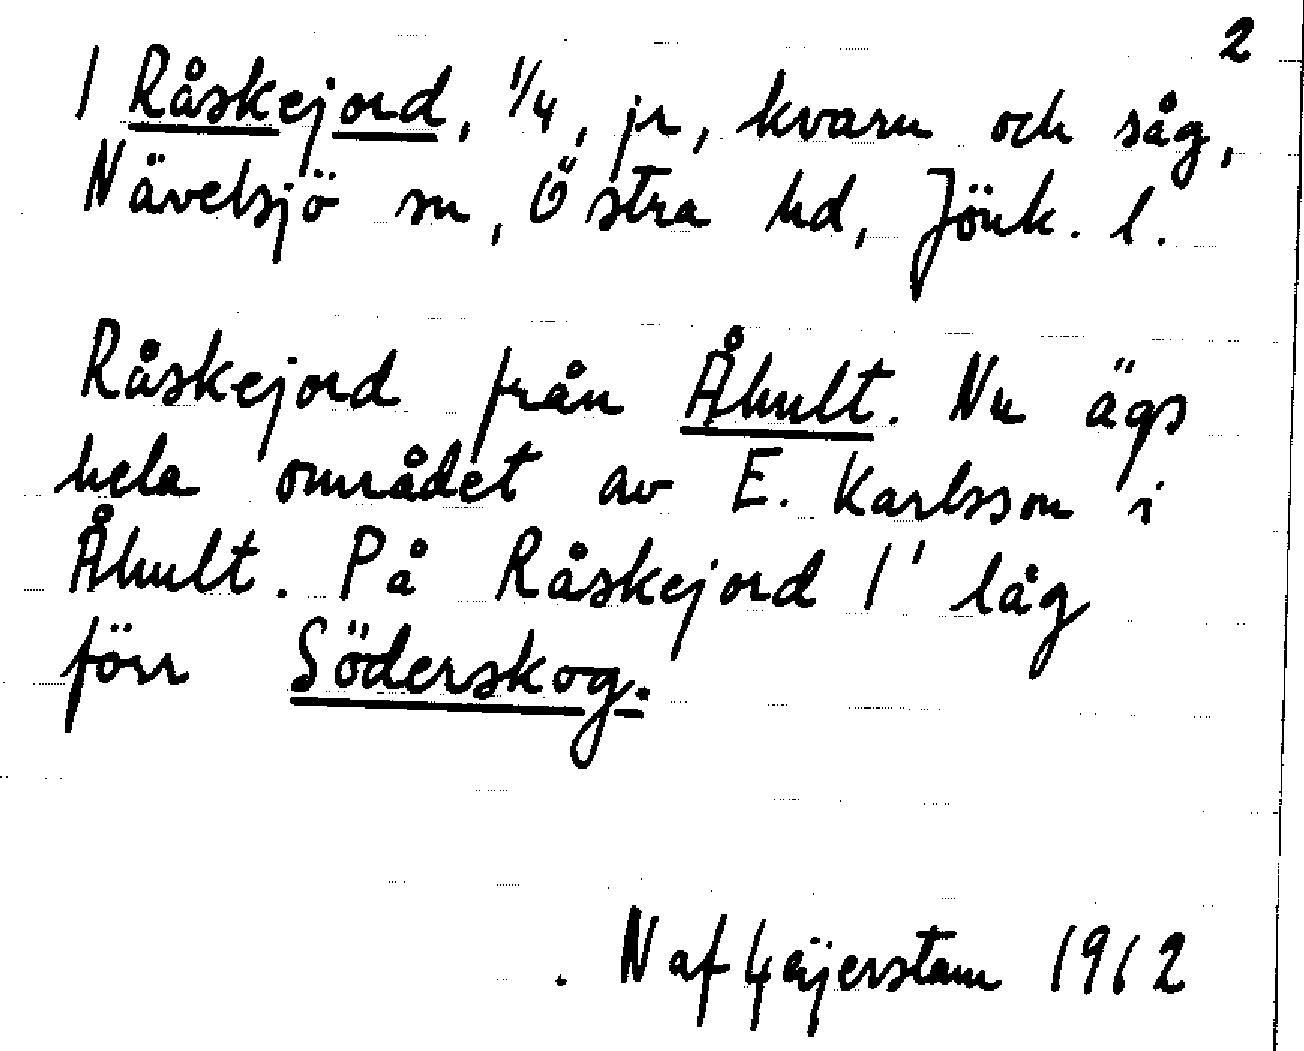 2
1 Råskejord, 1/4, jr, kvarn och såg,
Nävelsjö sn, Östra hd, Jönk. l.
Råskejord från Åhult. Nu ägs
hela området av E. Karlsson i
Åhult. På Råskejord 1' låg
förr Söderskog.
N af Geijerstam 1962